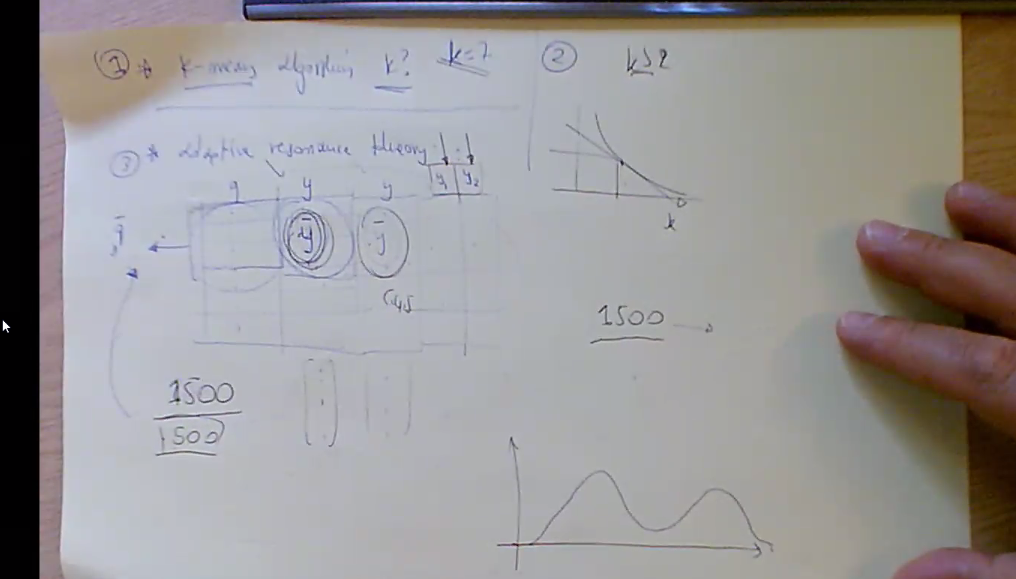 ① * k-means algorithm k? k=?
② k≥2
③ * adaptive resonance theory
y y y₁ y₂
ȳ ȳ
k
1500
1500
1500